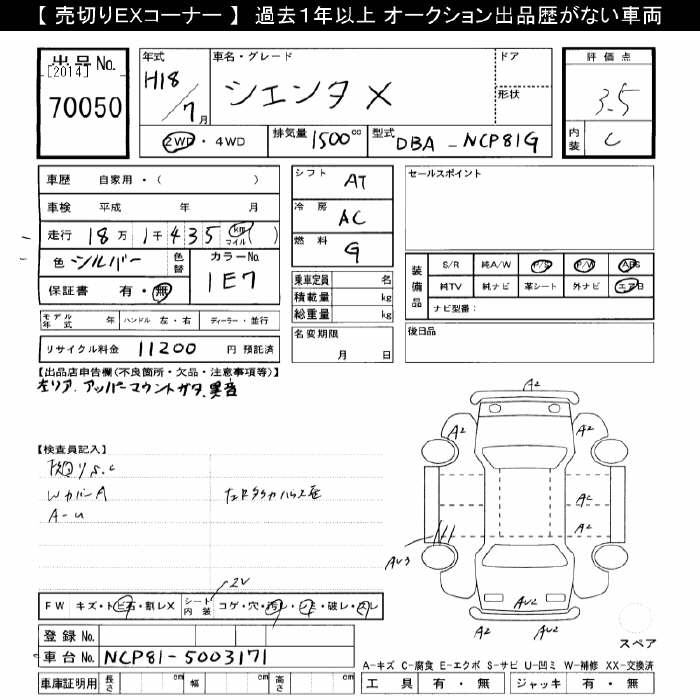 【 売切りEXコーナー 】 過去1年以上 オークション出品歴がない車両
出品 No.
[2014]
70050
年式
H18
7月
車名・グレード
シエンタ X
ドア
形状
評価点
3.5
内装
C
2WD・4WD
排気量 1500 cc
型式 DBA - NCP81G
車歴 自家用・( )
車検 平成 年 月
走行 18万 1千 4 3 5 km マイル )
色 シルバー
色替
カラーNo.
1E7
保証書 有・無
シフト AT
冷房 AC
燃料 G
セールスポイント
乗車定員 名
積載量 kg
総重量 kg
装備品
S/R 純A/W P/S P/W ABS
純TV 純ナビ 革シート 外ナビ エアB
ナビ型番:
モデル年式 年 ハンドル 左・右 ディーラー・並行
リサイクル料金 11200 円 預託済
名変期限
月 日
後日品
【出品店申告欄(不良箇所・欠品・注意事項等)】
左リア アッパーマウントガタ、異音
【検査員記入】
WカバーA
A-U
A2
A2
A2
A2
A2
AU3
AU2
A2
A2
2V
FW キズ・トビ石・割レX
シート内装
コゲ・穴・汚レ・シミ・破レ・スレ
登録 No.
車台 No. NCP81-5003171
車庫証明用 長さ cm 幅 cm 高さ cm
スペア
A-キズ C-腐食 E-エクボ S-サビ U-凹ミ W-補修 XX-交換済
工具 有・無 ジャッキ 有・無